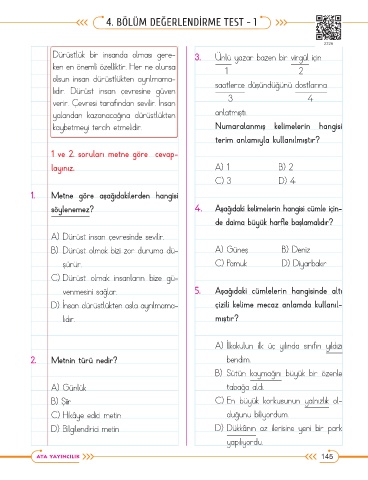 4. BÖLÜM DEĞERLENDİRME TEST - 1
2328
Dürüstlük bir insanda olması gere-
ken en önemli özelliktir. Her ne olursa
olsun insan dürüstlükten ayrılmama-
lıdır. Dürüst insan çevresine güven
verir. Çevresi tarafından sevilir. İnsan
yalandan kazanacağına dürüstlükten
kaybetmeyi tercih etmelidir.
1 ve 2. soruları metne göre cevap-
layınız.
1. Metne göre aşağıdakilerden hangisi
söylenemez?
A) Dürüst insan çevresinde sevilir.
B) Dürüst olmak bizi zor duruma dü-
şürür.
C) Dürüst olmak insanların bize gü-
venmesini sağlar.
D) İnsan dürüstlükten asla ayrılmama-
lıdır.
2. Metnin türü nedir?
A) Günlük
B) Şiir
C) Hikâye edici metin
D) Bilgilendirici metin
3. Ünlü yazar bazen bir virgül için
1 2
saatlerce düşündüğünü dostlarına
3 4
anlatmıştı.
Numaralanmış kelimelerin hangisi
terim anlamıyla kullanılmıştır?
A) 1 B) 2
C) 3 D) 4
4. Aşağıdaki kelimelerin hangisi cümle için-
de daima büyük harfle başlamalıdır?
A) Güneş B) Deniz
C) Pamuk D) Diyarbakır
5. Aşağıdaki cümlelerin hangisinde altı
çizili kelime mecaz anlamda kullanıl-
mıştır?
A) İlkokulun ilk üç yılında sınıfın yıldızı
bendim.
B) Sütün kaymağını büyük bir özenle
tabağa aldı.
C) En büyük korkusunun yalnızlık ol-
duğunu biliyordum.
D) Dükkânın az ilerisine yeni bir park
yapılıyordu.
ATA YAYINCILIK
145